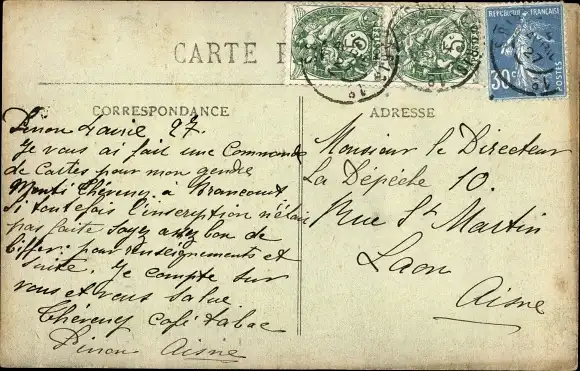 CARTE P
CORRESPONDANCE
Pinon 4 avril 27.
Je vous ai fait une Commande
de Cartes pour mon gendre
Monti Chéreney à Brancourt
Si toutefois l'inscription n'était
pas faite soyez assez bon de
biffer. pour renseignements et
suite. Je compte sur
vous et vous salue
Chéreney Café tabac
Pinon Aisne
ADRESSE
Monsieur le Directeur
La Dépêche 10.
Rue St Martin
Laon
Aisne
5c
POSTES
5c
POSTES
REPUBLIQUE FRANÇAISE
30c
POSTES
27